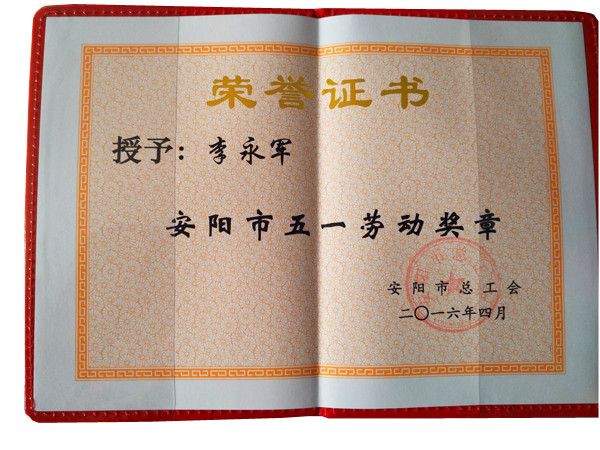 荣誉证书
授予：李永军
安阳市五一劳动奖章
安阳市总工会
二〇一六年四月